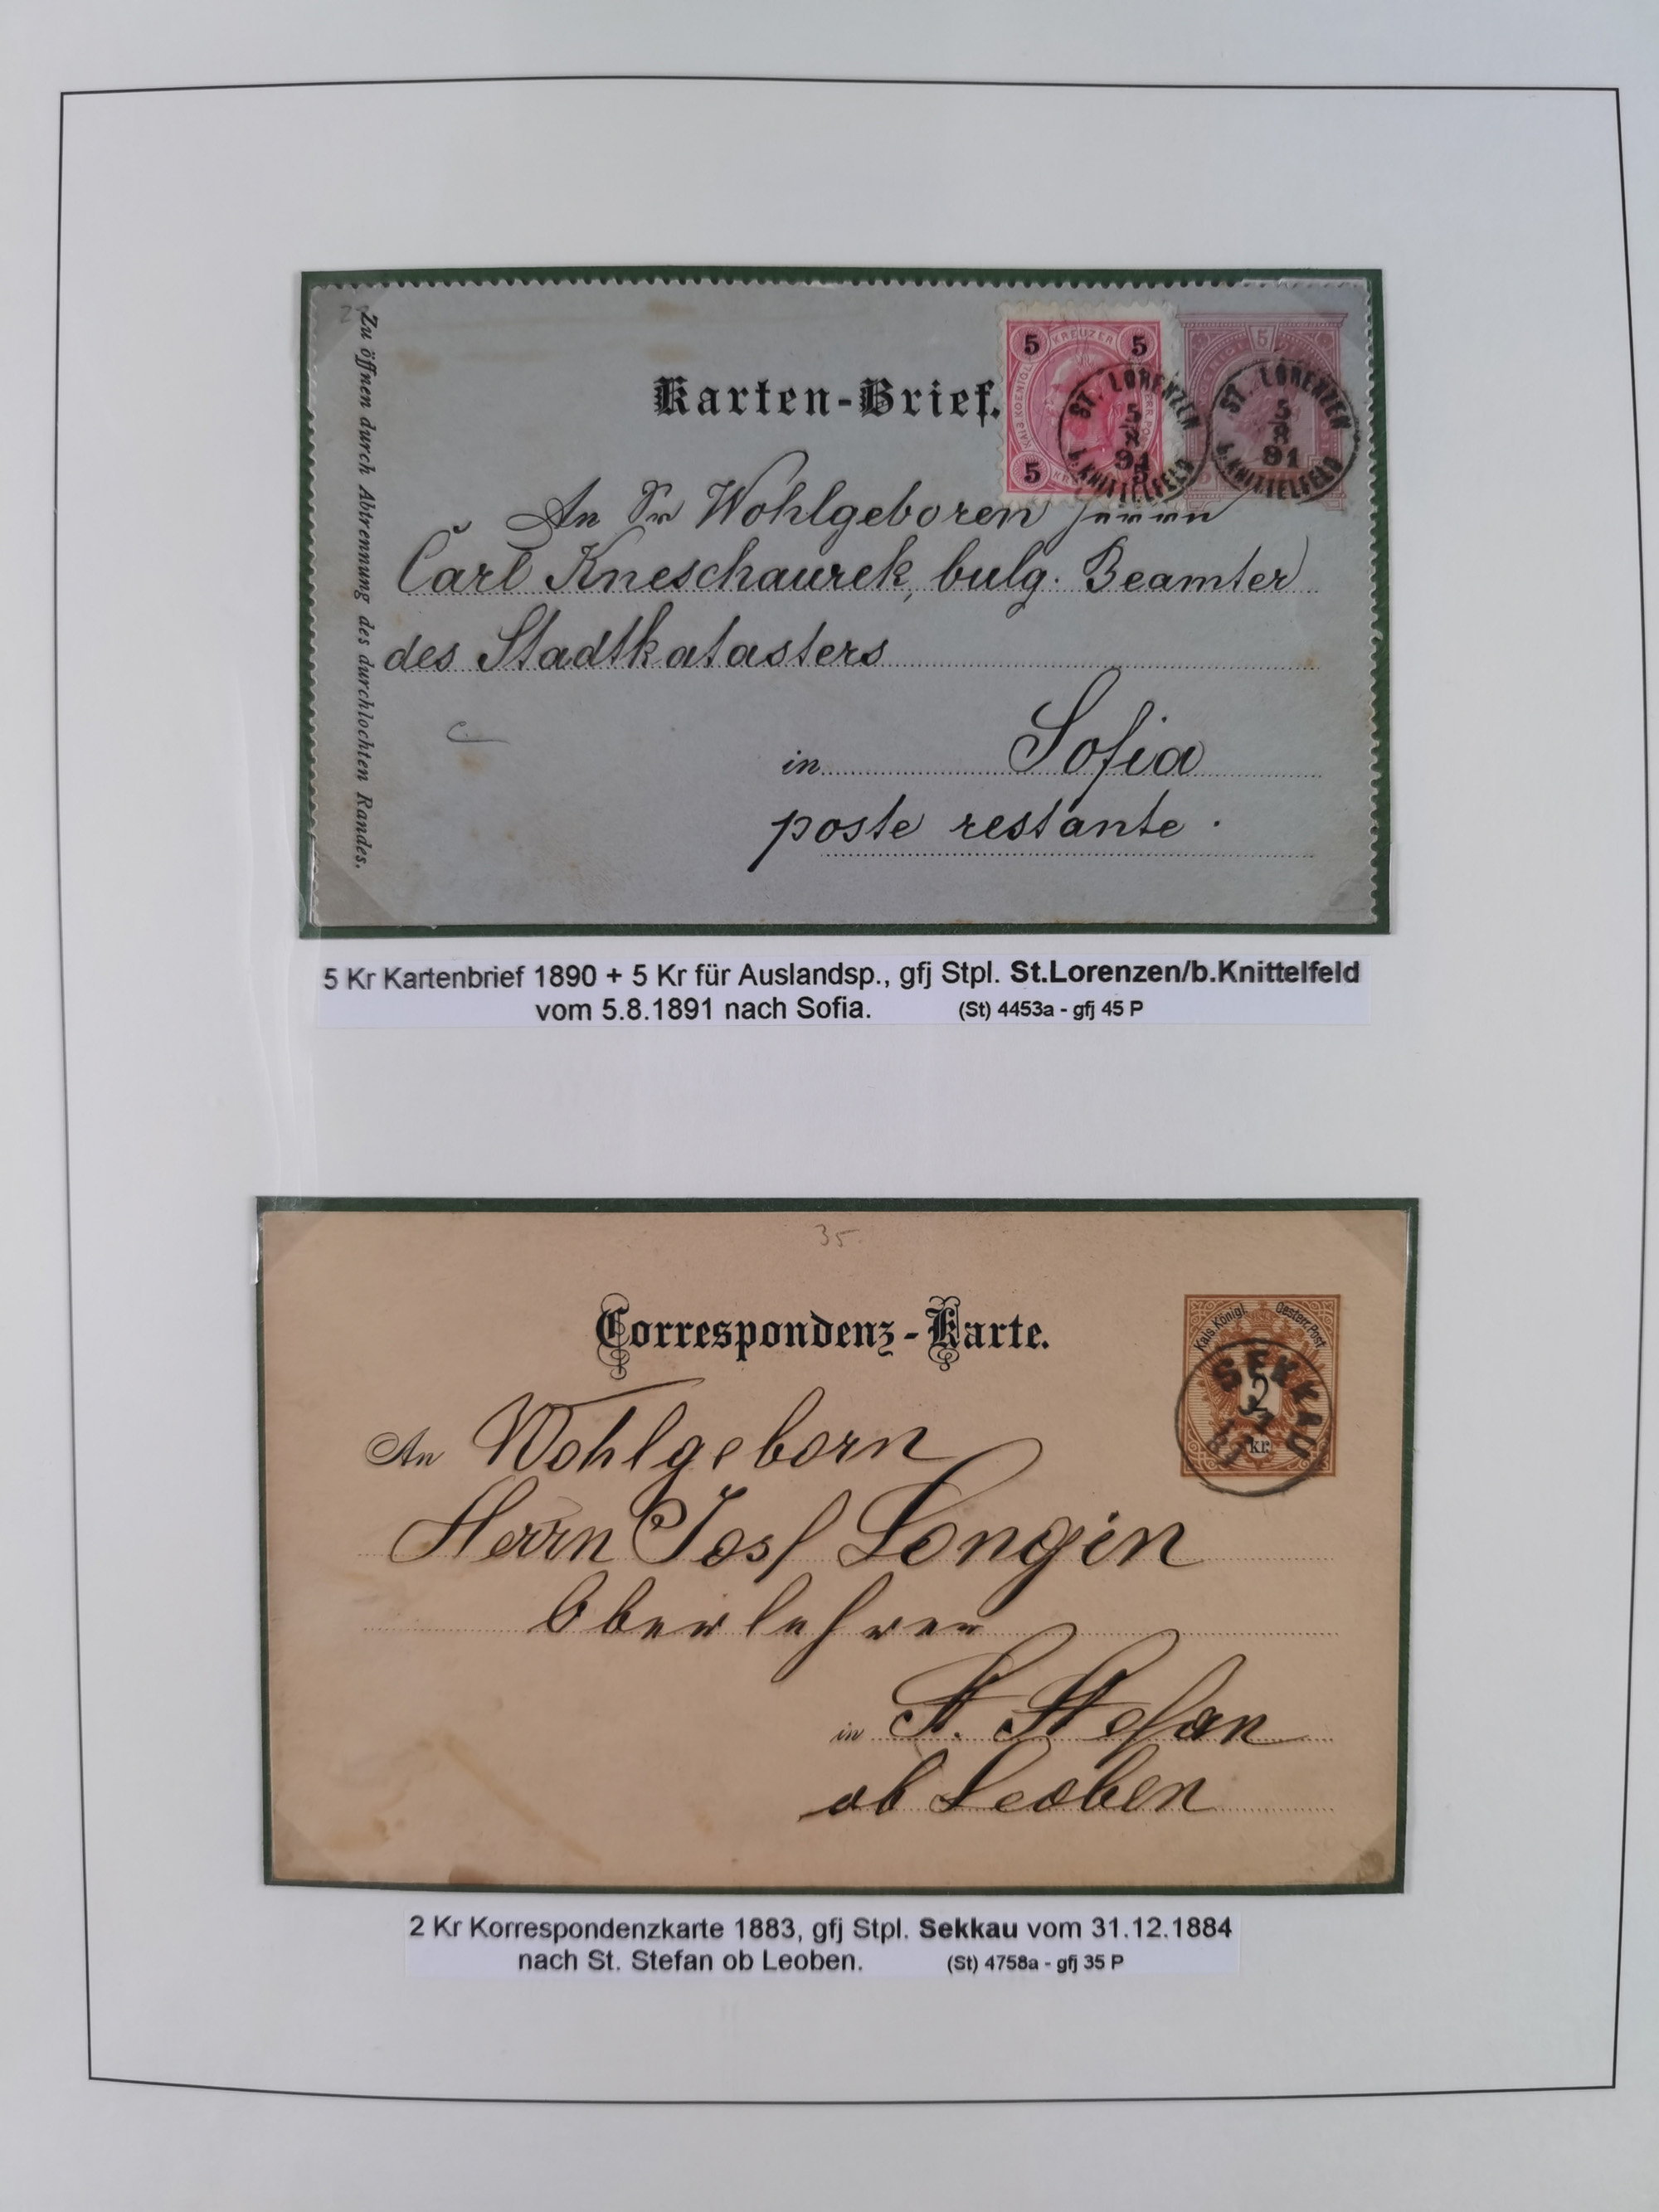 Zu öffnen durch Abtrennung des durchlochten Randes.
Karten-Brief.
5 KREUZER 5
5
5
ST. LORENZEN
5
8
91
b. KNITTELFELD
ST. LORENZEN
5
8
91
b. KNITTELFELD
An Sr Wohlgeboren Herrn
Carl Kneschaurek, bulg. Beamter
des Stadtkatasters
in Sofia
poste restante.
5 Kr Kartenbrief 1890 + 5 Kr für Auslandsp., gfj Stpl. St.Lorenzen/b.Knittelfeld
vom 5.8.1891 nach Sofia. (St) 4453a - gfj 45 P
35.
Correspondenz-Karte.
Kais. Königl. Oesterr. Post
SEKKAU
2
kr.
An Wohlgeborn
Herrn Josf Longin
Oberlehrer
in St. Stefan
ob Leoben
2 Kr Korrespondenzkarte 1883, gfj Stpl. Sekkau vom 31.12.1884
nach St. Stefan ob Leoben. (St) 4758a - gfj 35 P